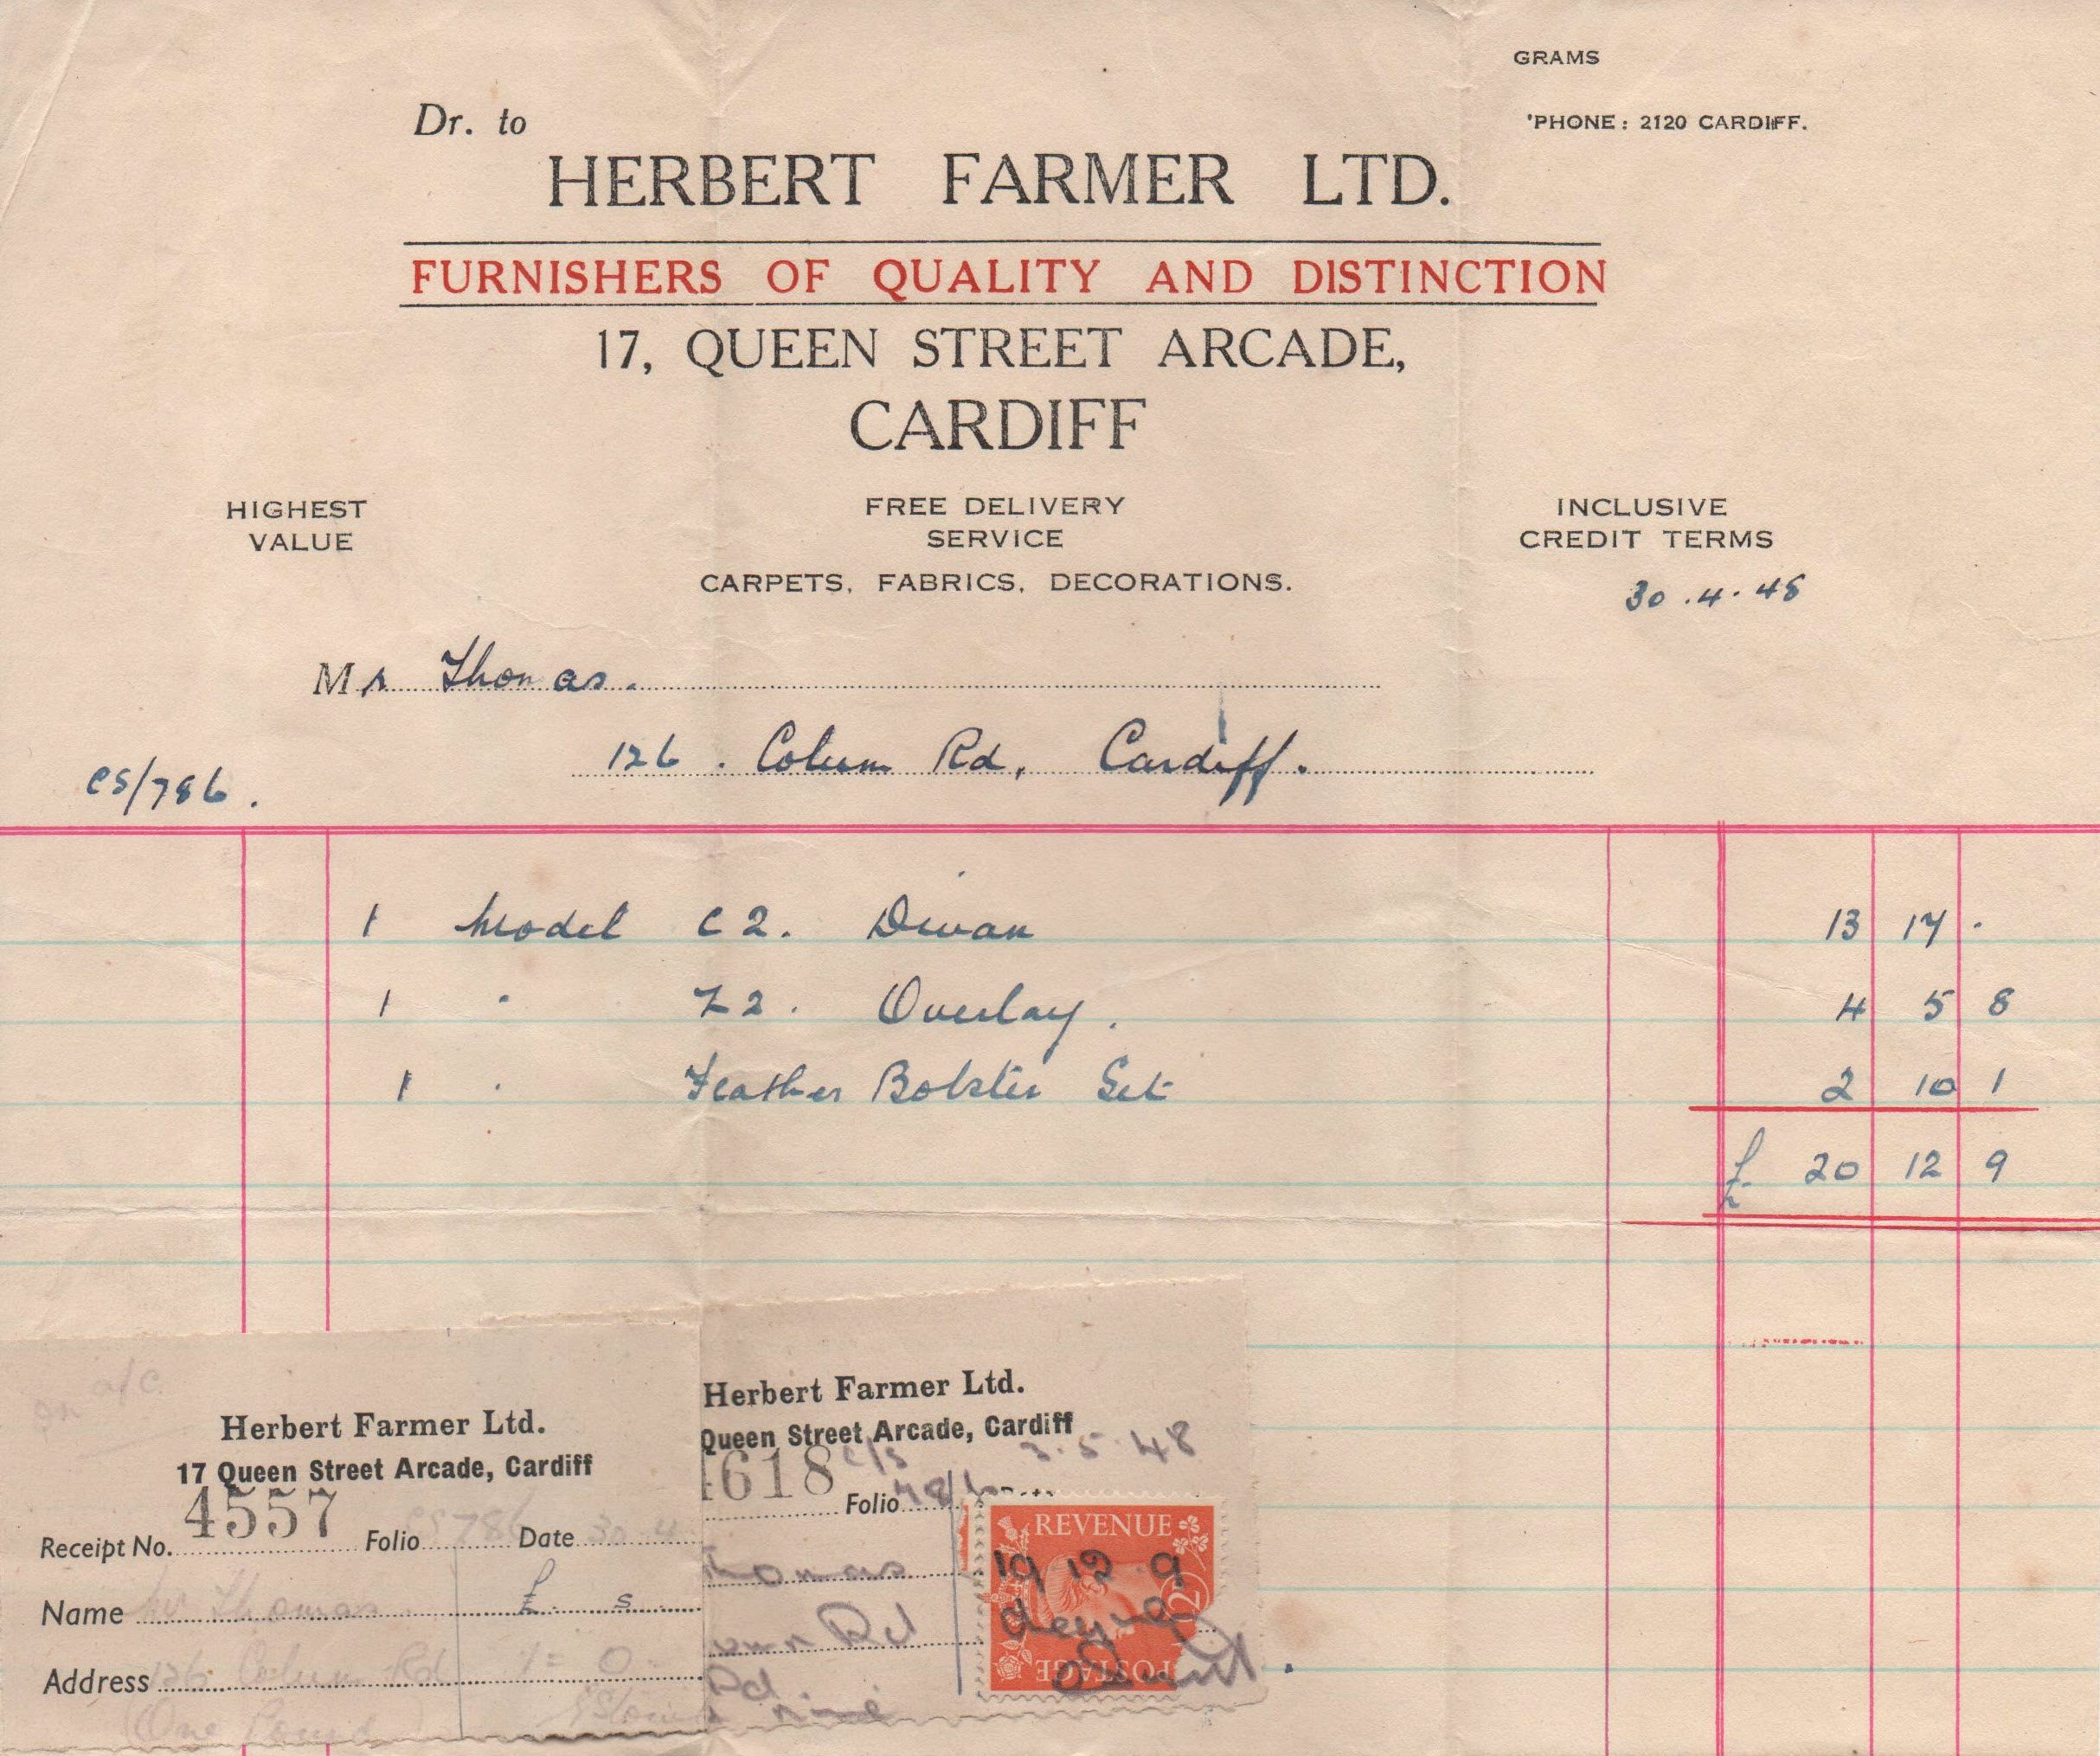 GRAMS
Dr. to
'PHONE: 2120 CARDIFF.
HERBERT FARMER LTD.
FURNISHERS OF QUALITY AND DISTINCTION
17, QUEEN STREET ARCADE,
CARDIFF
HIGHEST VALUE
FREE DELIVERY SERVICE
INCLUSIVE CREDIT TERMS
CARPETS, FABRICS, DECORATIONS.
30.4.48
Mr Thomas.
126. Colum Rd, Cardiff.
CS/786.
1 Model C2. Divan 13 17 .
1 " Z2. Overlay. 4 5 8
1 " Feather Bolster Set 2 10 1
£ 20 12 9
on a/c
Herbert Farmer Ltd.
17 Queen Street Arcade, Cardiff
Receipt No. 4557 Folio CS786 Date 30.4
Name Mr Thomas. £ s
Address 126 Colum Rd 1 = 0 -
One Pound
Herbert Farmer Ltd.
Queen Street Arcade, Cardiff
618 C/S 3.5.48
Folio
homas
Rd
Rd
nine
REVENUE
19 12 9
POSTAGE